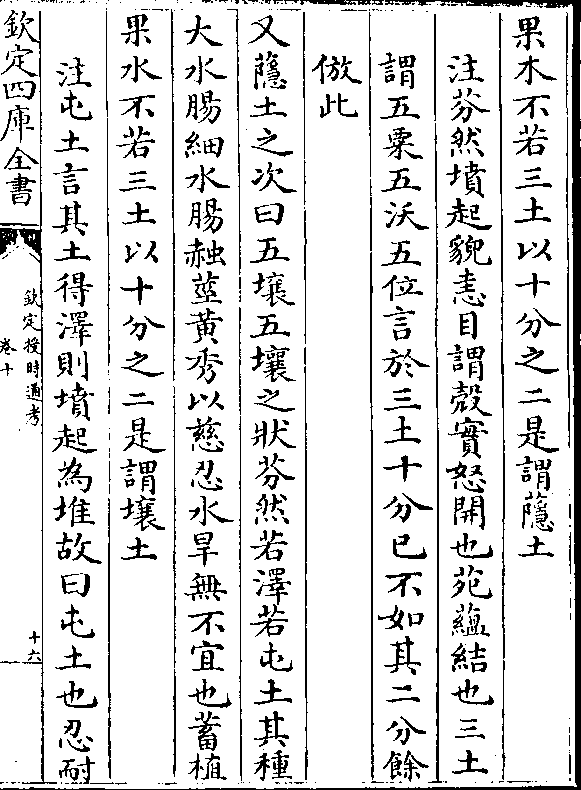 果木不若三土以十分之二是謂蘟土
注芬然墳起貌恚目謂殻實怒開也苑蘊結也三土
謂五粟五沃五位言於三土十分已不如其二分餘
倣此
又蘟土之次曰五壤五壤之狀芬然若澤若屯土其種
大水腸細水腸赨莖黄秀以慈忍水旱無不宜也蓄植
果木不若三土以十分之二是謂壤土
注屯土言其土得澤則墳起為堆故曰屯土也忍耐
欽定四庫全書
欽定授時通考
卷十
十六